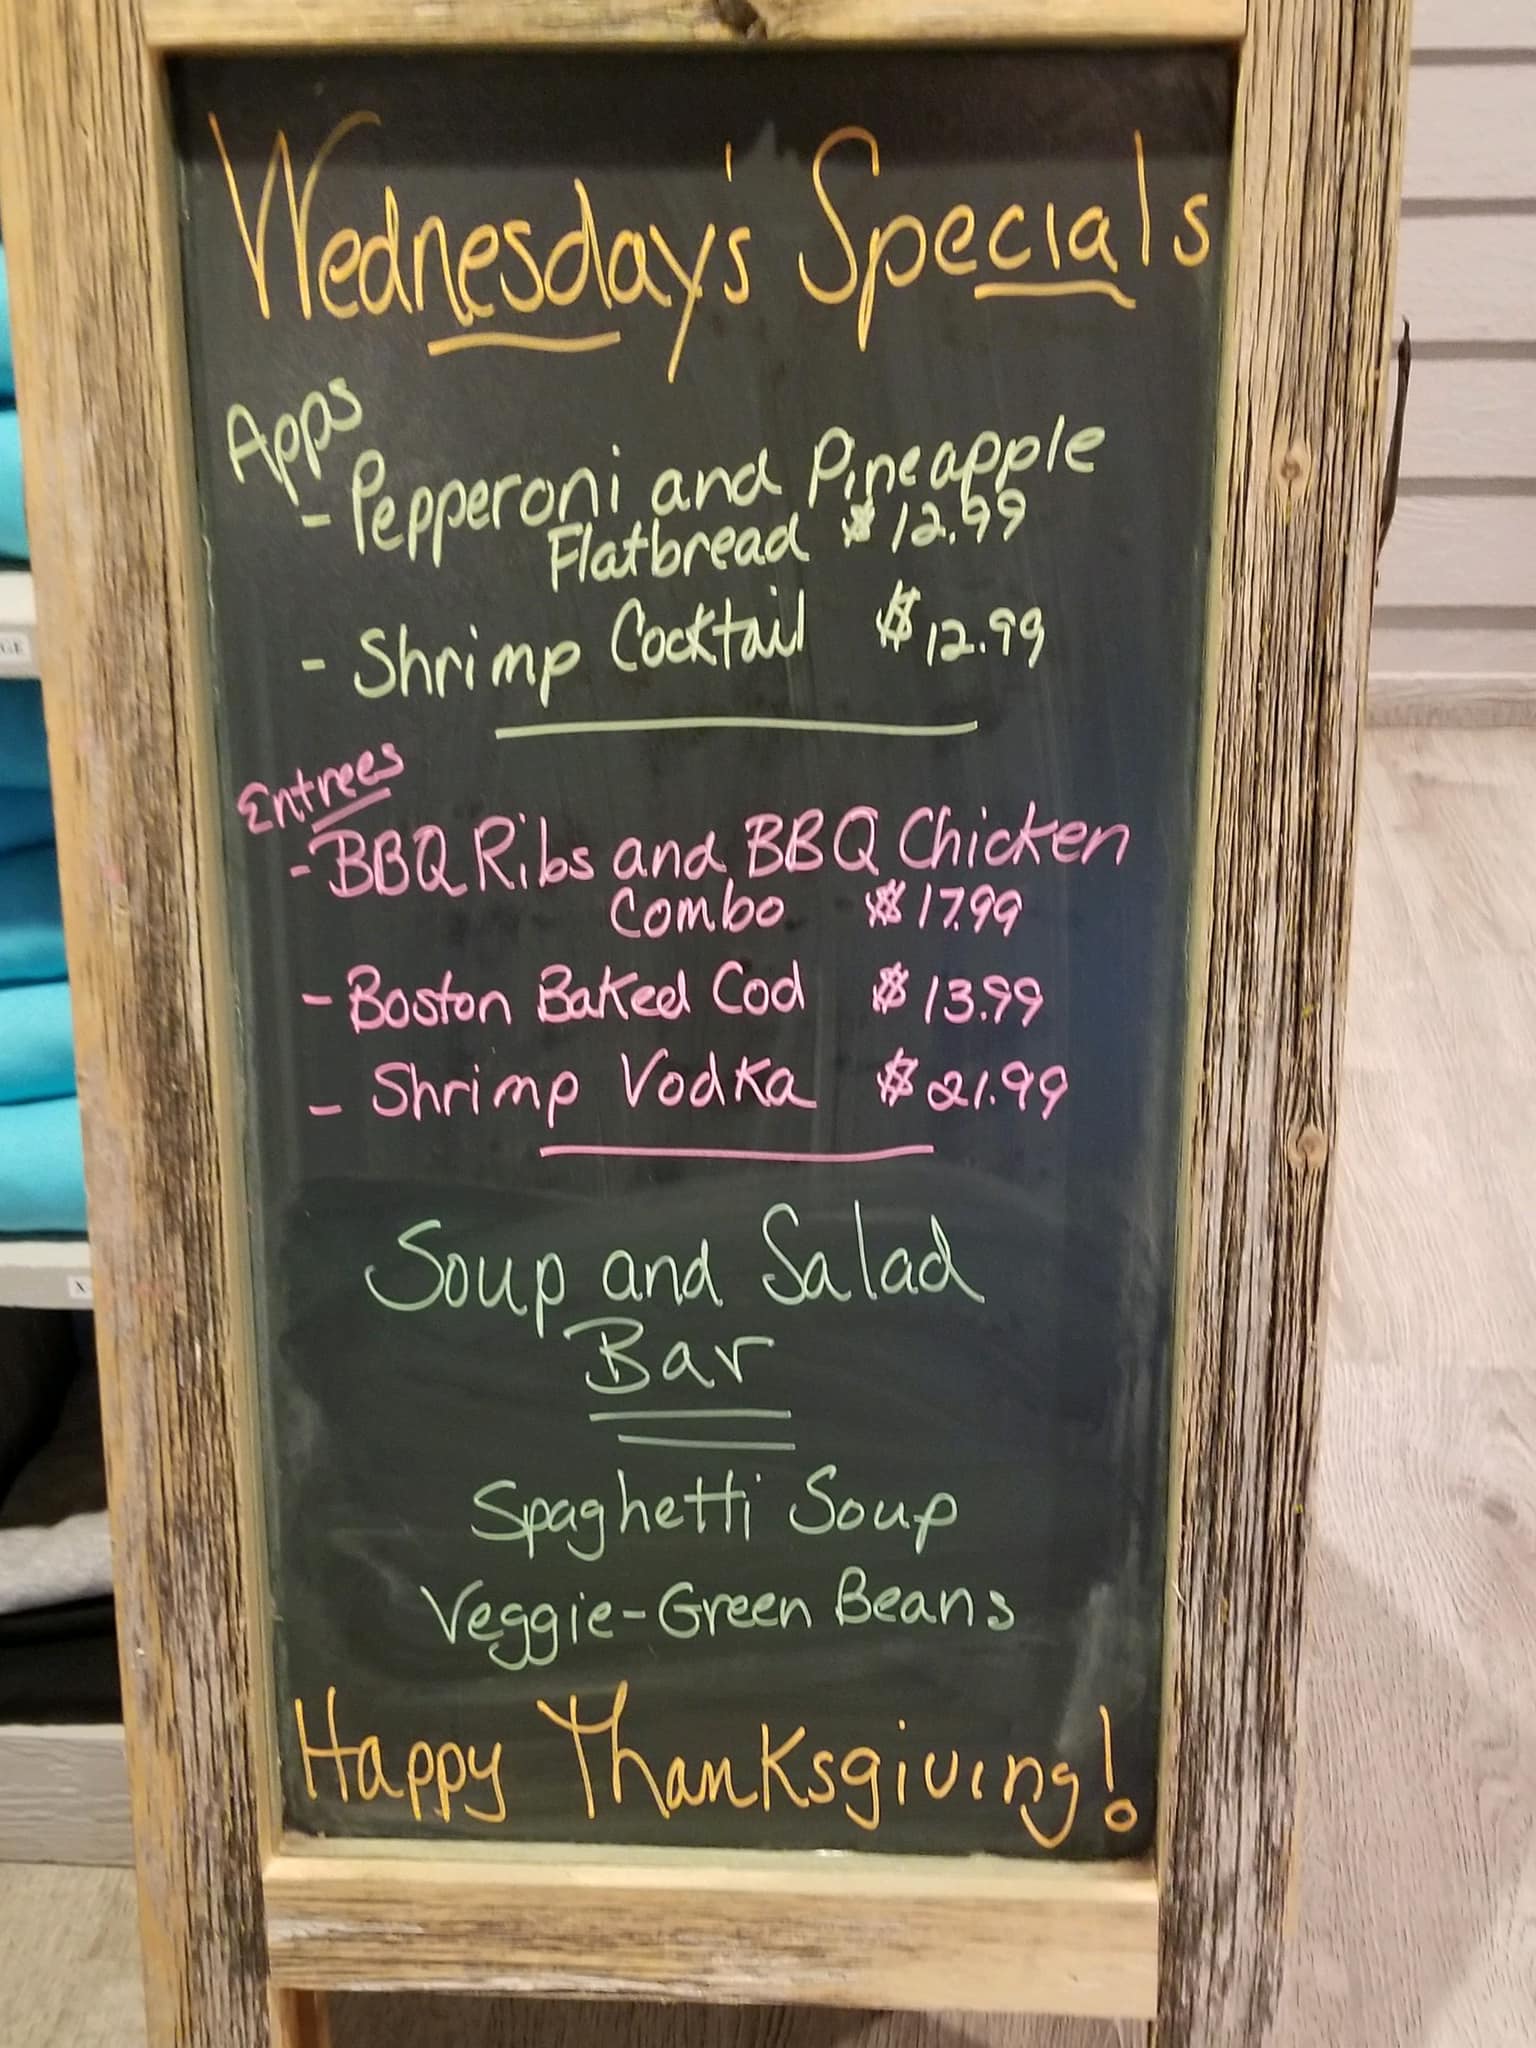 Wednesday's Specials
Apps
- Pepperoni and Pineapple
Flatbread $12.99
- Shrimp Cocktail $12.99
Entrees
- BBQ Ribs and BBQ Chicken
Combo $17.99
- Boston Baked Cod $13.99
- Shrimp Vodka $21.99
Soup and Salad
Bar
Spaghetti Soup
Veggie-Green Beans
Happy Thanksgiving!